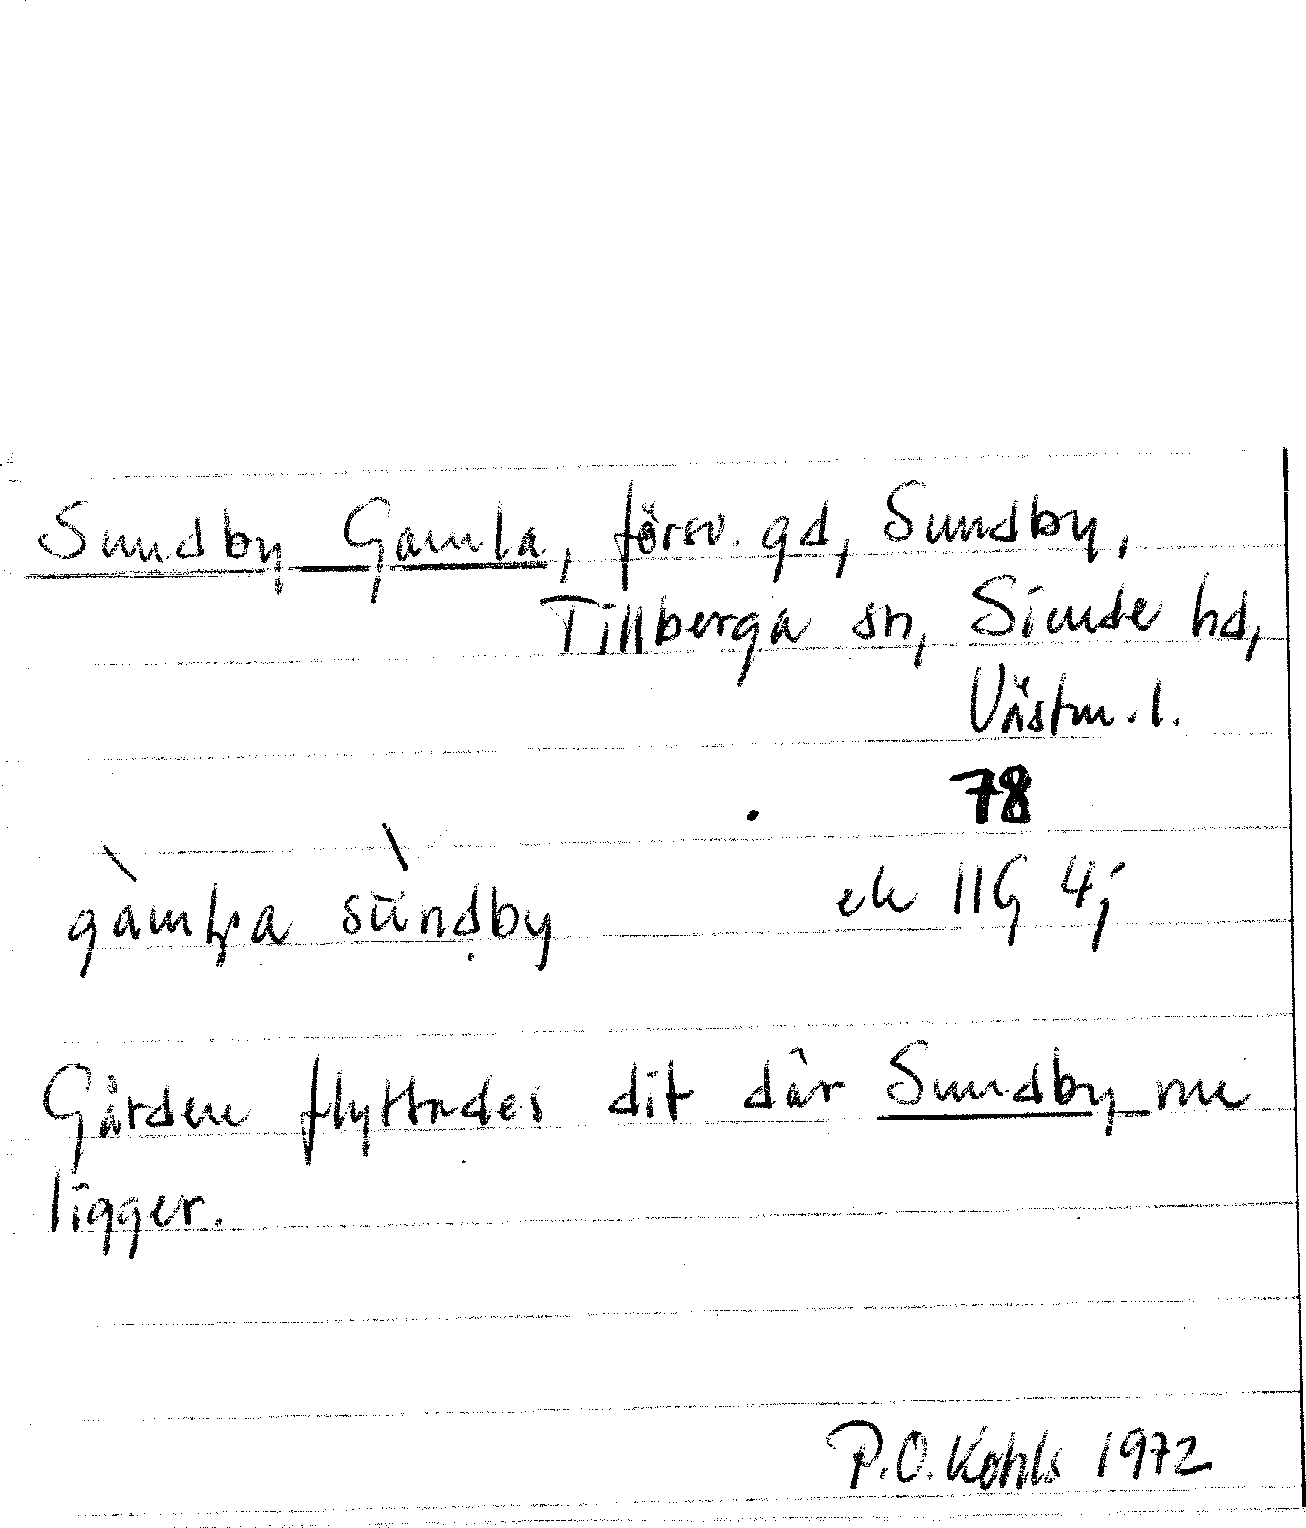 Sundby Gamla, försv. gd, Sundby,
Tillberga sn, Siende hd,
Västm. l.
78
gàmḷa sùndby ek 11G 4j
Gården flyttades dit där Sundby nu
ligger.
P.O. Kohls 1972